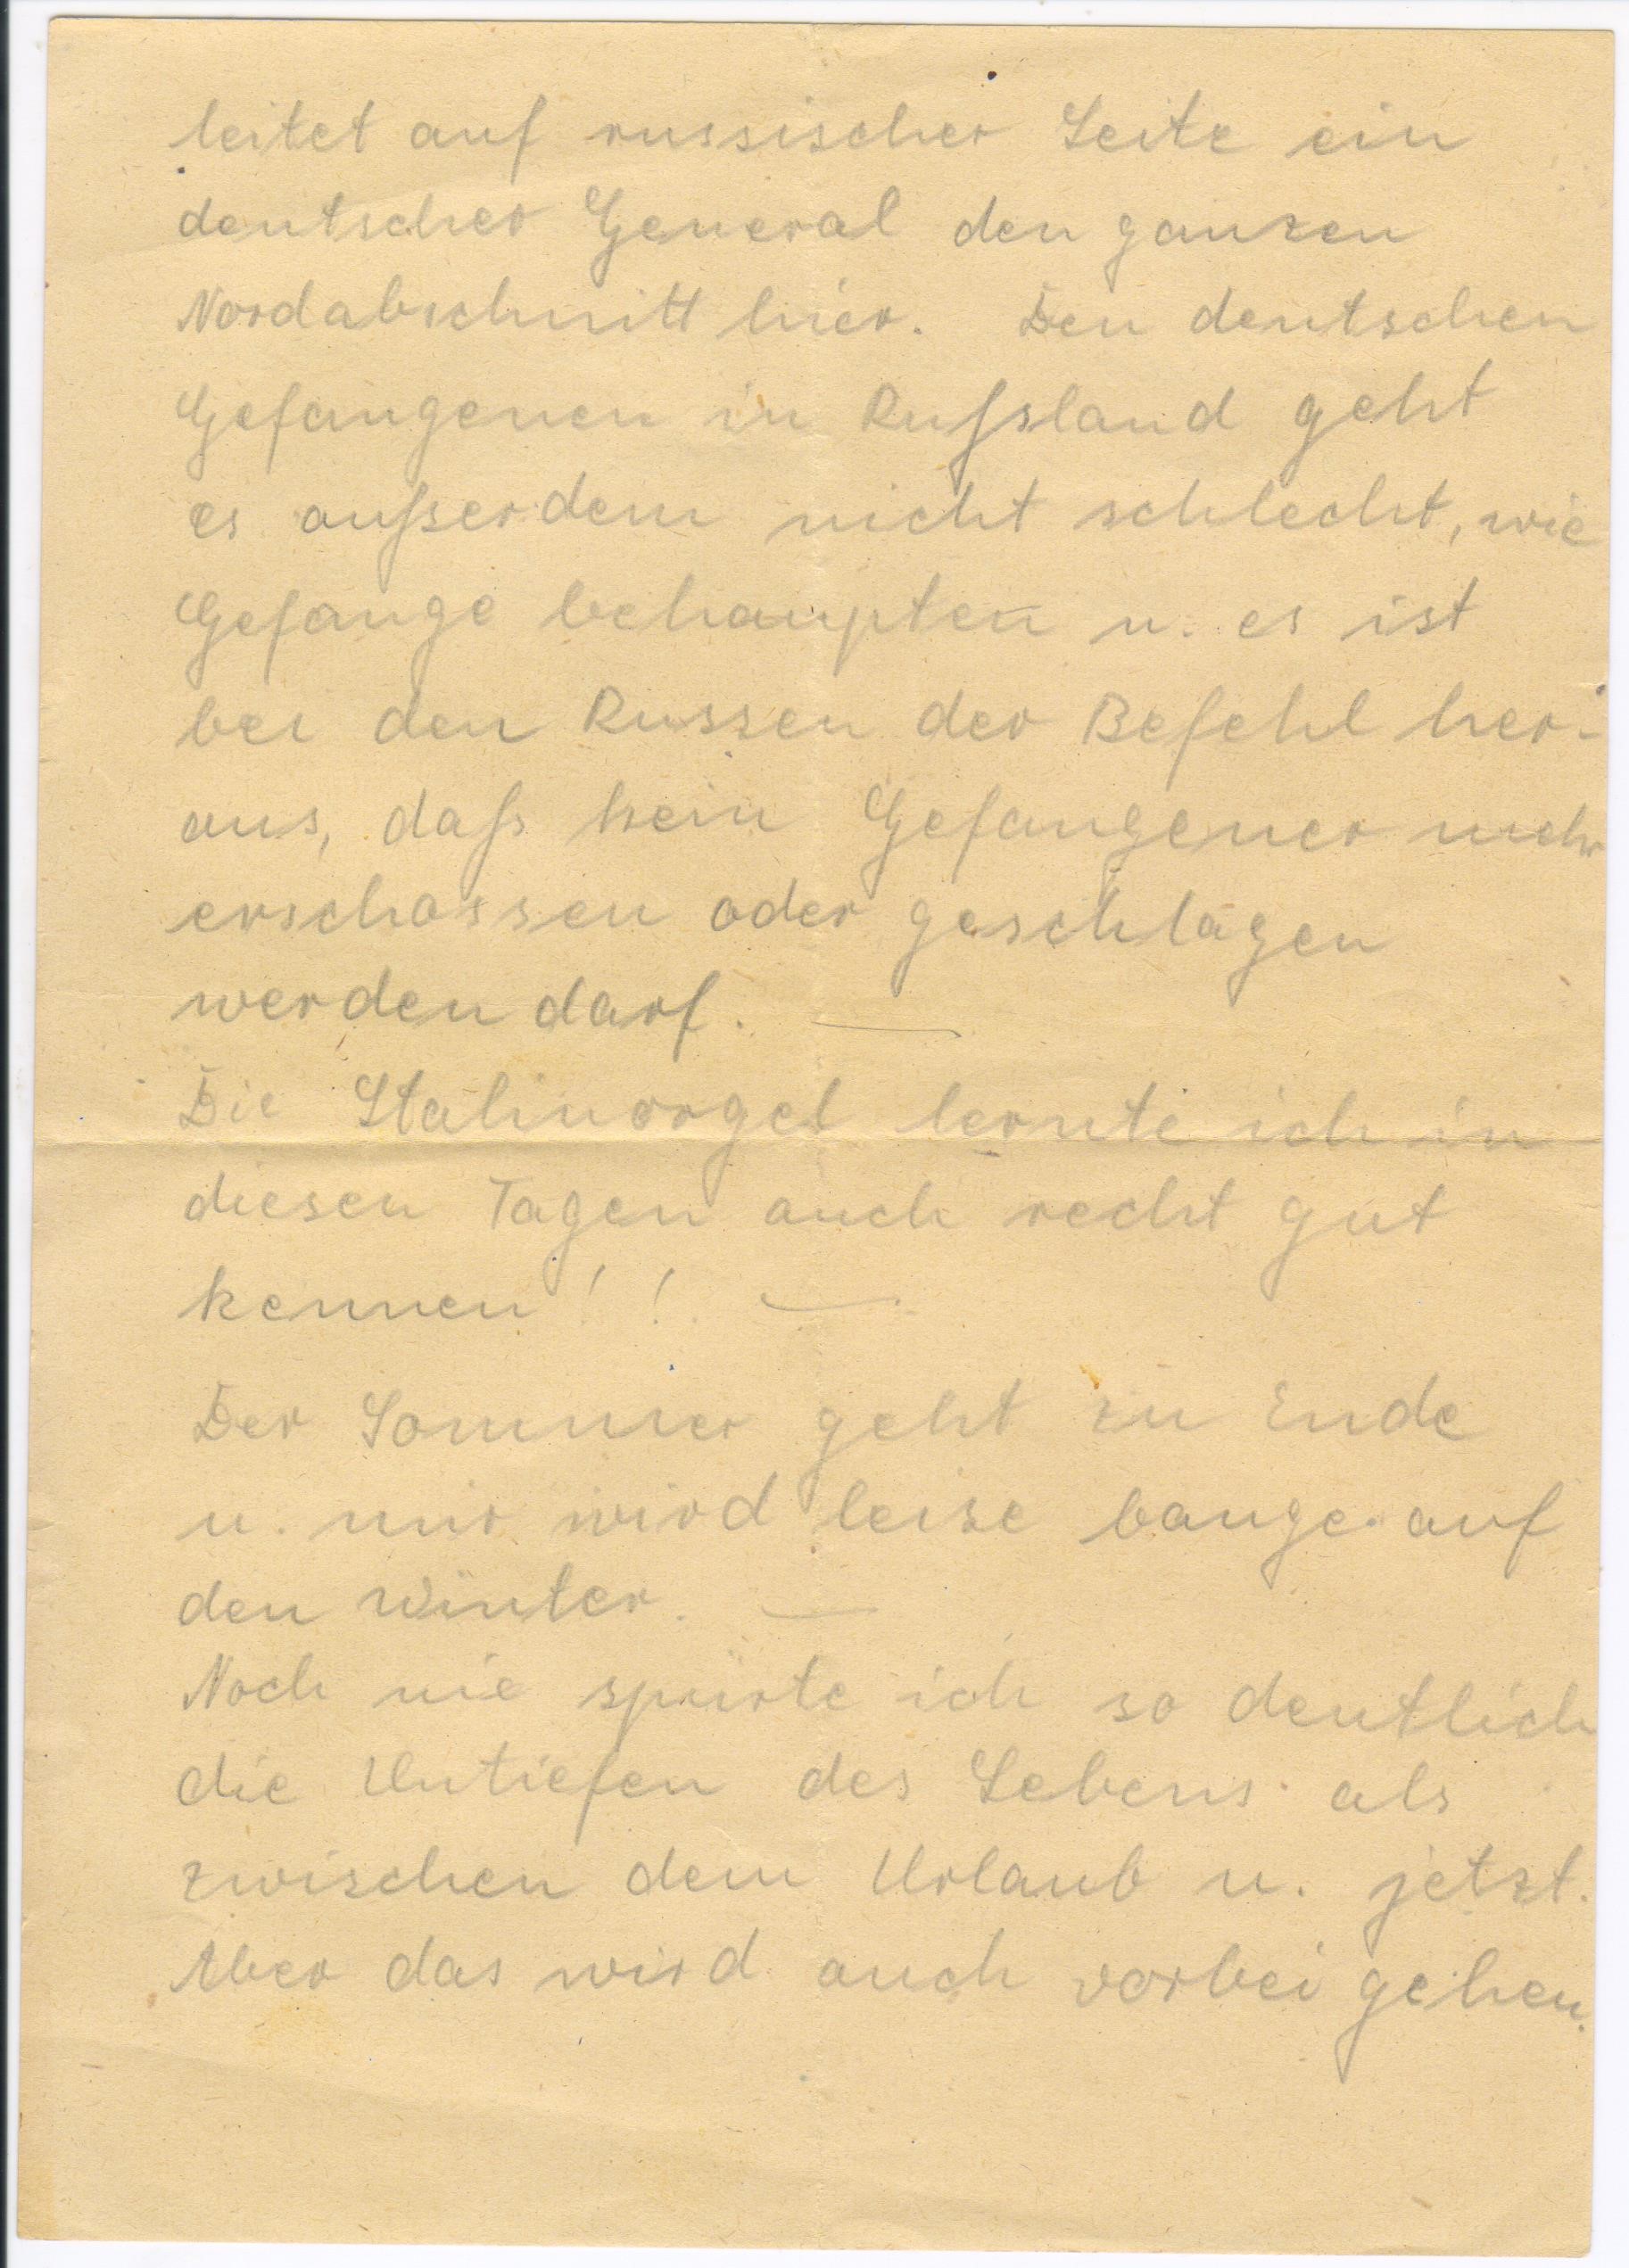 leitet auf russischer Seite ein
deutscher General den ganzen
Nordabschnitt hier. Den deutschen
Gefangenen in Rußland geht
es außerdem nicht schlecht, wie
Gefange behaupten u. es ist
bei den Russen der Befehl her-
aus, daß kein Gefangener mehr
erschossen oder geschlagen
werden darf. —
Die Stalinorgel lernte ich in
diesen Tagen auch recht gut
kennen!! —
Der Sommer geht zu Ende
u. mir wird leise bange auf
den Winter. —
Noch nie spürte ich so deutlich
die Untiefen des Lebens als
zwischen dem Urlaub u. jetzt.
Aber das wird auch vorbei gehen.